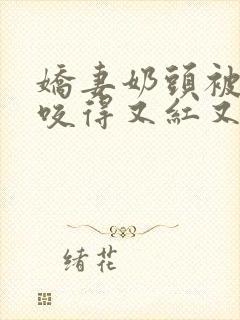 嬌妻奶頭被
咬得又紅又
緒花